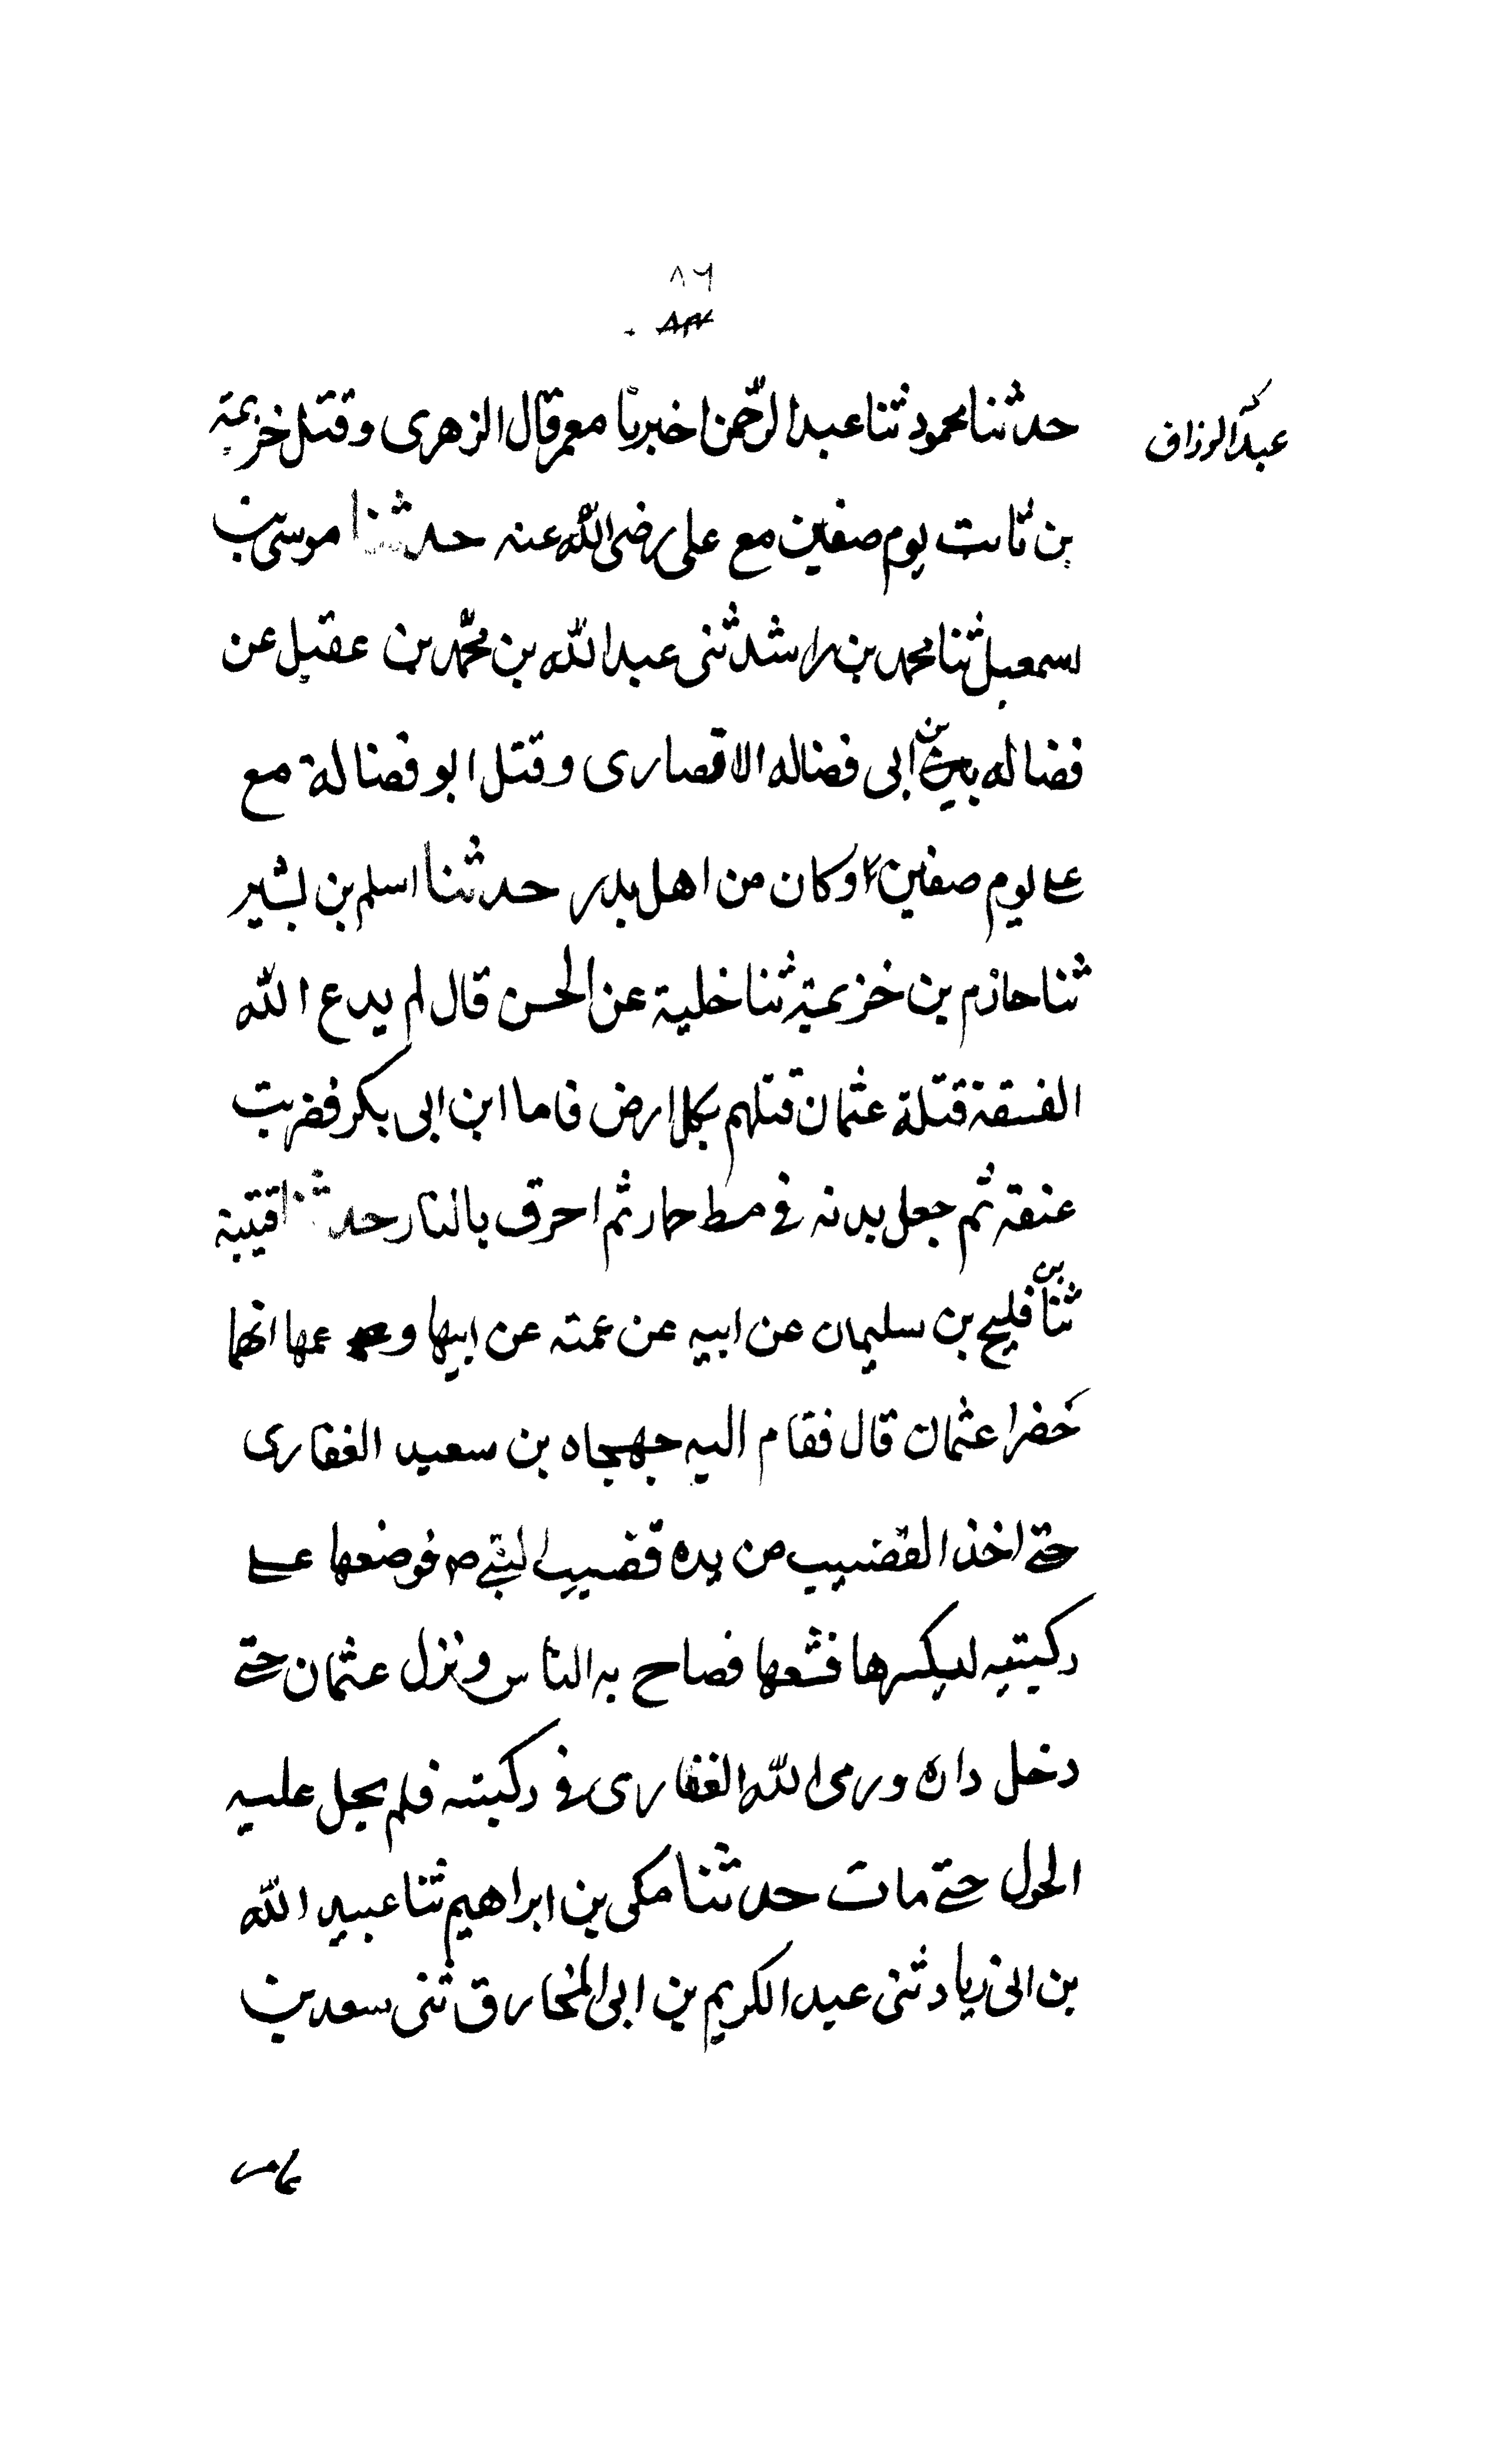 ٨٦
حدثنا محمود ثنا عبد الرحمن اخبرنا معمر قال الزهرى وقتل خزيمة
عبد الرزاق
بن ثابت يوم صفين مع على رضى الله عنه حدثنا موسى بن
اسمعيل ثنا محمد بن راشد ثنى عبد الله بن محمد بن عقيل عن
فضاله بن ابى فضاله الانصارى وقتل ابو فضالة مع
على يوم صفين وكان من اهل بدر حدثنا اسلم بن بشير
ثنا حازم بن خزيمة ثنا خلية عن الحسن قال لم يدع الله
الفسقة قتلة عثمان قتلهم بكل ارض فاما ابن ابى بكر فضربت
عنقه ثم جعل بدنه فى مسط حمار ثم احرق بالنار حدثنا قتيبة
ثنا فليح بن سليمان عن ابيه عن عمته عن ابيها و عمها انهما
حضرا عثمان قال فقام اليه جهجاه بن سعيد الغفارى
حتى اخذ القضيب من يده قضيب النبى ص فوضعها على
ركبتيه ليكسرها فشعها فصاح به الناس ونزل عثمان حتى
دخل داره ورمى الله الغفارى فى ركبته فلم يحل عليه
الحول حتى مات حدثنا مكى بن ابراهيم ثنا عبيد الله
بن ابى زياد ثنى عبد الكريم بن ابى المخارق ثنى سعد بن
عامر